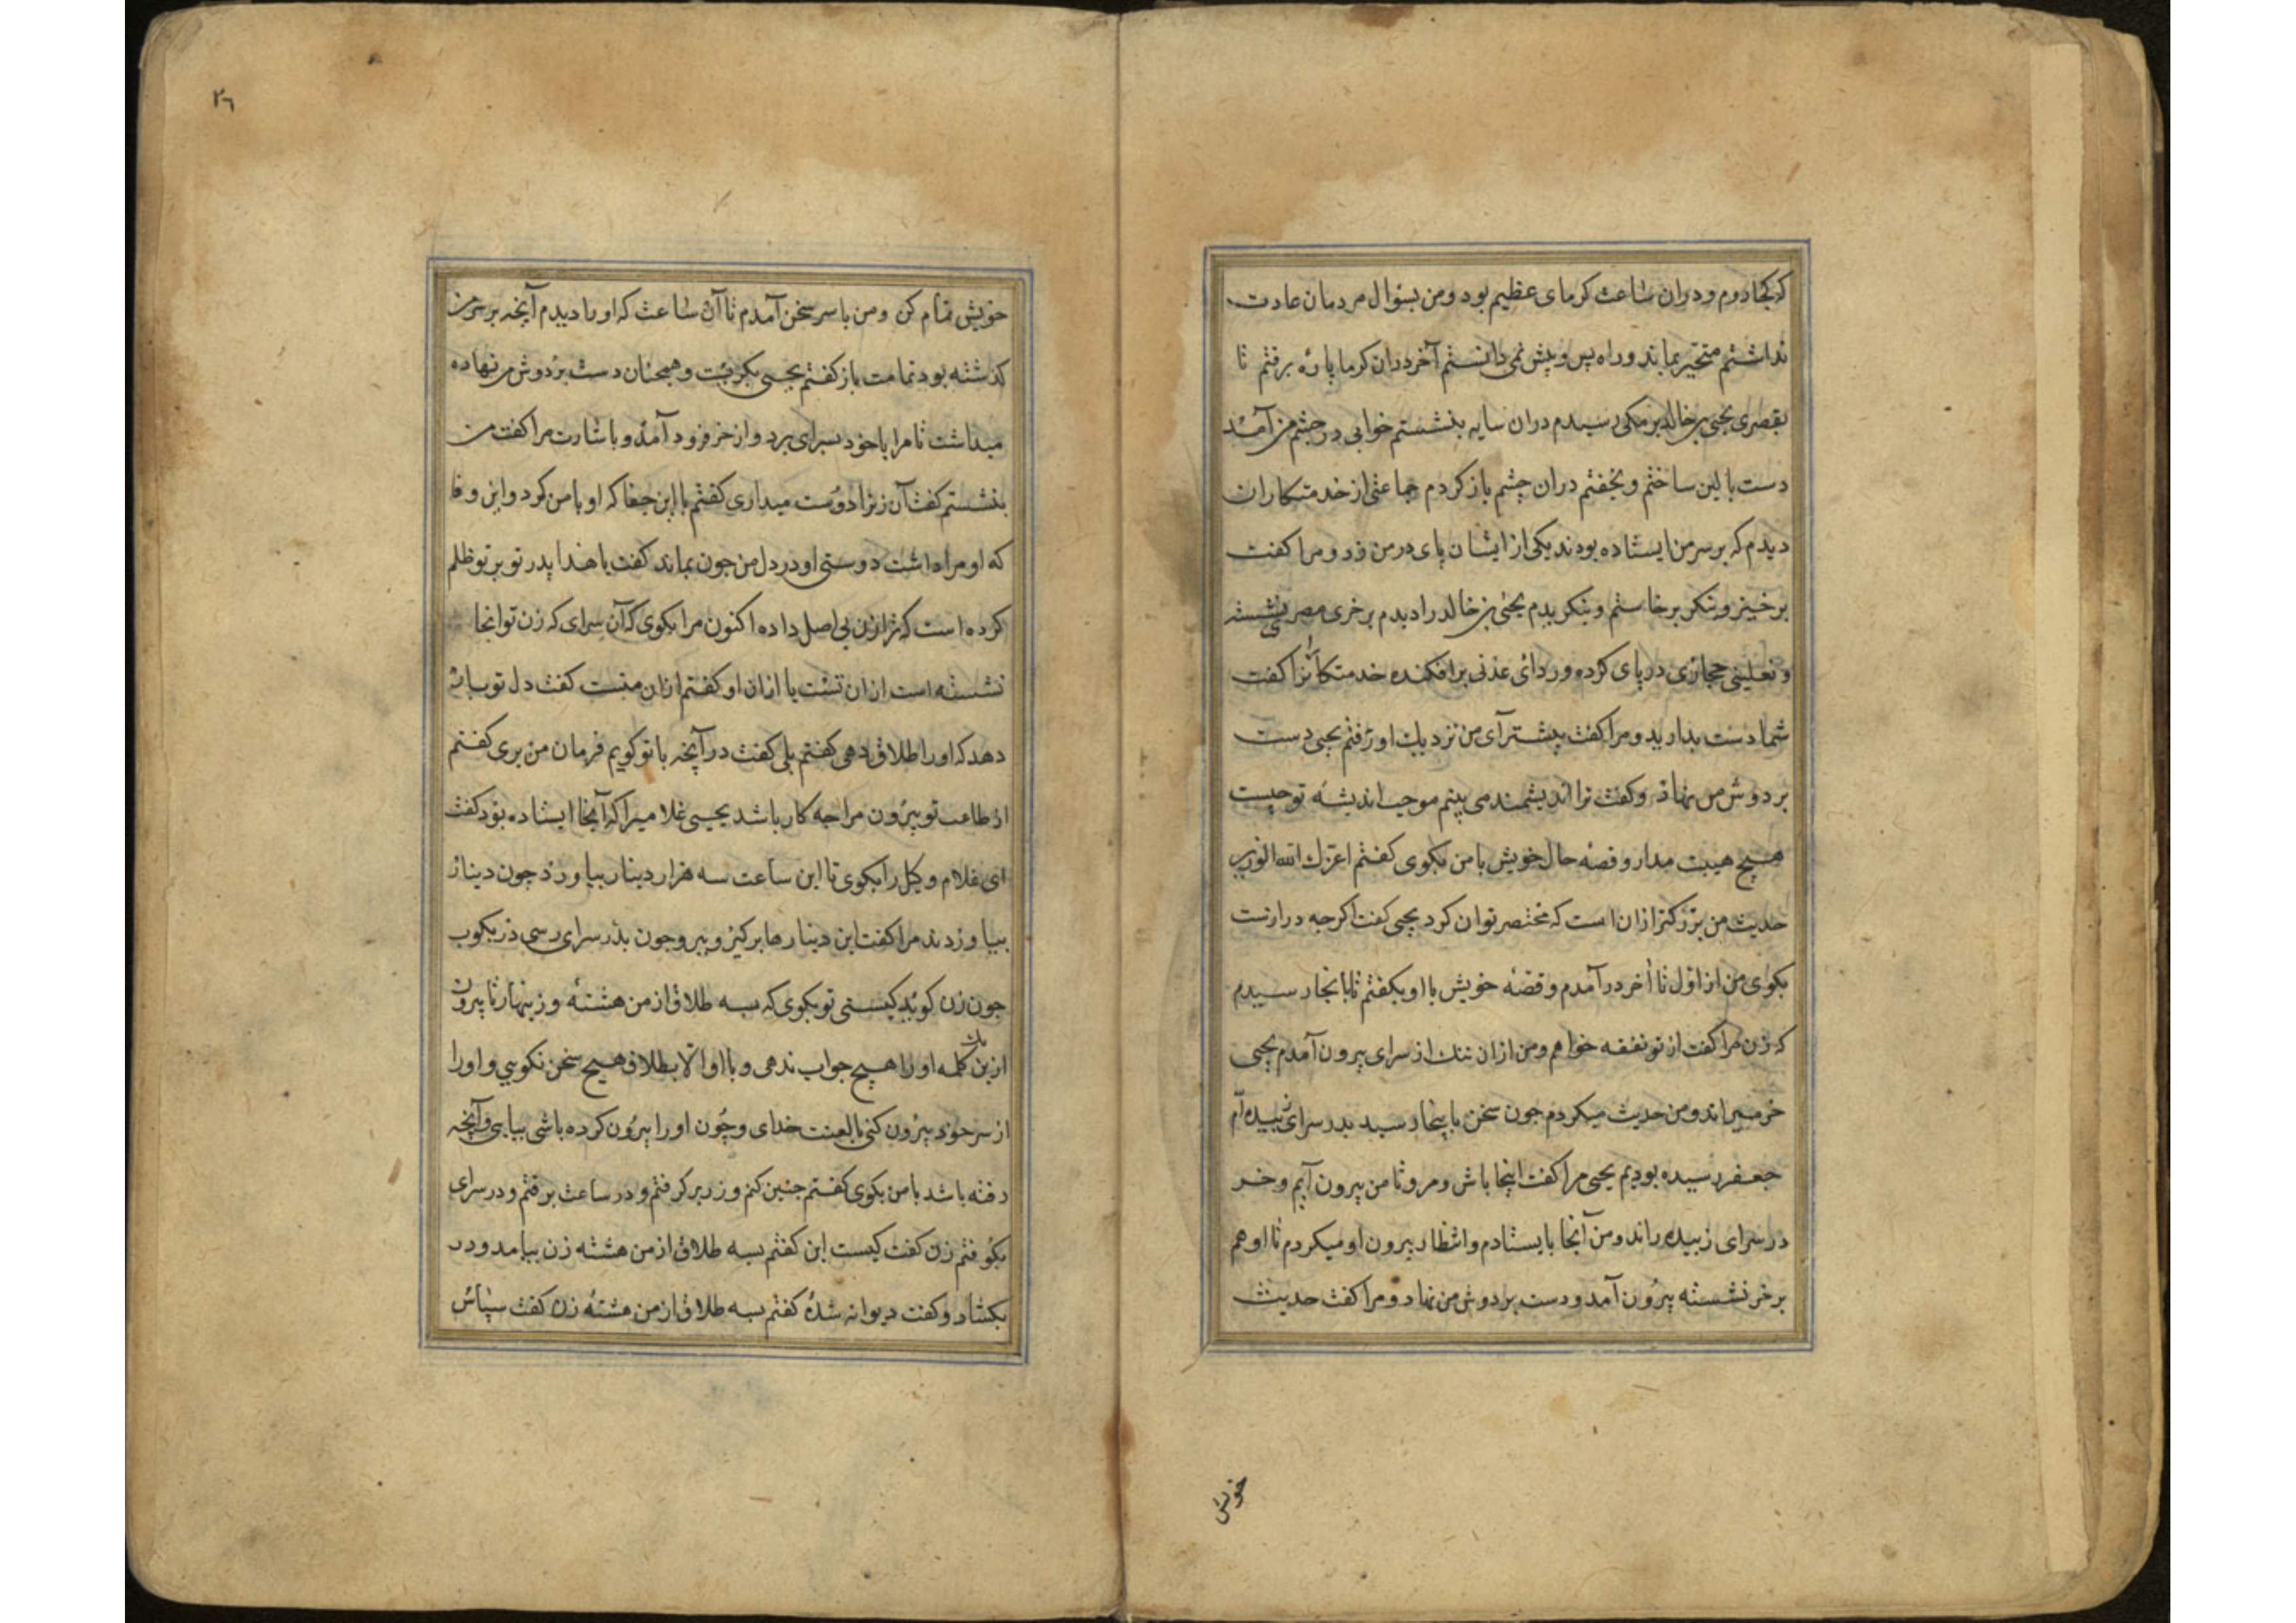 که کجا روم و دران ساعت کرمای عظیم بود و من بسؤال مردمان عادت
نداشتم متحیر بماند و راه پس و پیش نمی دانستم آخر دران کرما پاره برفتم تا
بقصری یحیی بن خالد برمکی رسیدم دران سایه بنشستم خوابی در چشم من آمد
دست بالین ساختم و بخفتم دران چشم باز کردم جماعتی از خدمتکاران
دیدم که بر سر من ایستاده بودند یکی از ایشان پای در من زد و مرا کفت
برخیز و بنکر برخاستم و بنکریدم یحیی بن خالد را دیدم بر خری مصری نشسته
و نعلینی حجازی در پای کرده و ردای عدنی برافکنده خدمتکارانرا کفت
شما دست بدارید و مرا کفت پیشتر آی من نزدیك او رفتم یحیی دست
بر دوش من نهاد و کفت ترا اندیشمند می بینم موجب اندیشه تو چیست
هیچ هیبت مدار و قصه حال خویش با من بکوی کفتم اعزك الله الوزیر
حدیث من بزرکتر ازان است که مختصر توان کرد یحیی کفت اکرجه درازست
بکوی من از اول تا آخر درآمدم و قصه خویش با او بکفتم تا بانجا رسیدم
که زن مرا کفت از تو نفقه خواهم و من ازان ننك از سرای بیرون آمدم یحیی
خر میراند و من حدیث میکردم جون سخن باینجا رسید بدر سرای زبیده ام
جعفر رسیده بودیم یحیی مرا کفت اینجا باش و مرو تا من بیرون آیم و خر
در سرای زبیده راند و من آنجا بایستادم و انتظار بیرون او میکردم تا او هم
بر خر نشسته بیرون آمد و دست بر دوش من نهاد و مرا کفت حدیث
خویش
٢٦
خویش تمام کن و من با سر سخن آمدم تا آن ساعت که او را دیدم آنچه بر سر من
کذشته بود تمامت باز کفتم یحیی بکریست و همچنان دست بر دوش من نهاده
میداشت تا مرا با خود بسرای برد و از خر فرود آمد و باشارت مرا کفت من
بنشستم کفت آن زنرا دوست میداری کفتم با این جفا که او با من کرد و این وفا
که او مرا داشت دوستی او در دل من جون بماند کفت یا هذا پدر تو بر تو ظلم
کرده است که ترا زن بی اصل داده اکنون مرا بکوی که آن سرای که زن تو انجا
نشسته است ازان تست یا ازان او کفتم ازان منست کفت دل تو یاری
دهد که او را طلاق دهی کفتم بلی کفت در آنچه با تو کویم فرمان من بری کفتم
از طاعت تو بیرون مرا جه کار باشد یحیی غلامیرا که آنجا ایستاده بود کفت
ای غلام وکیل را بکوی تا این ساعت سه هزار دینار بیاورد جون دینار
بیاوردند مرا کفت این دینارها برکیر و برو جون بدر سرای رسی در بکوب
جون زن کوید کیستی تو بکوی که بسه طلاق از من هشتۀ و زینهار تا بیرون
ازین یك کلمه او را هیچ جواب ندهی و با او الا بطلاق هیچ سخن نکویی و او را
از سر خود بیرون کنی بالعنت خدای و چون او را بیرون کرده باشی بیایی و آنچه
رفته باشد با من بکوی کفتم جنین کنم و زر برکرفتم و در ساعت برفتم و در سرای
بکوفتم زن کفت کیست این کفتم بسه طلاق از من هشته زن بیامد و در
بکشاد و کفت دیوانه شدۀ کفتم بسه طلاق از من هشتۀ زن کفت سپاس